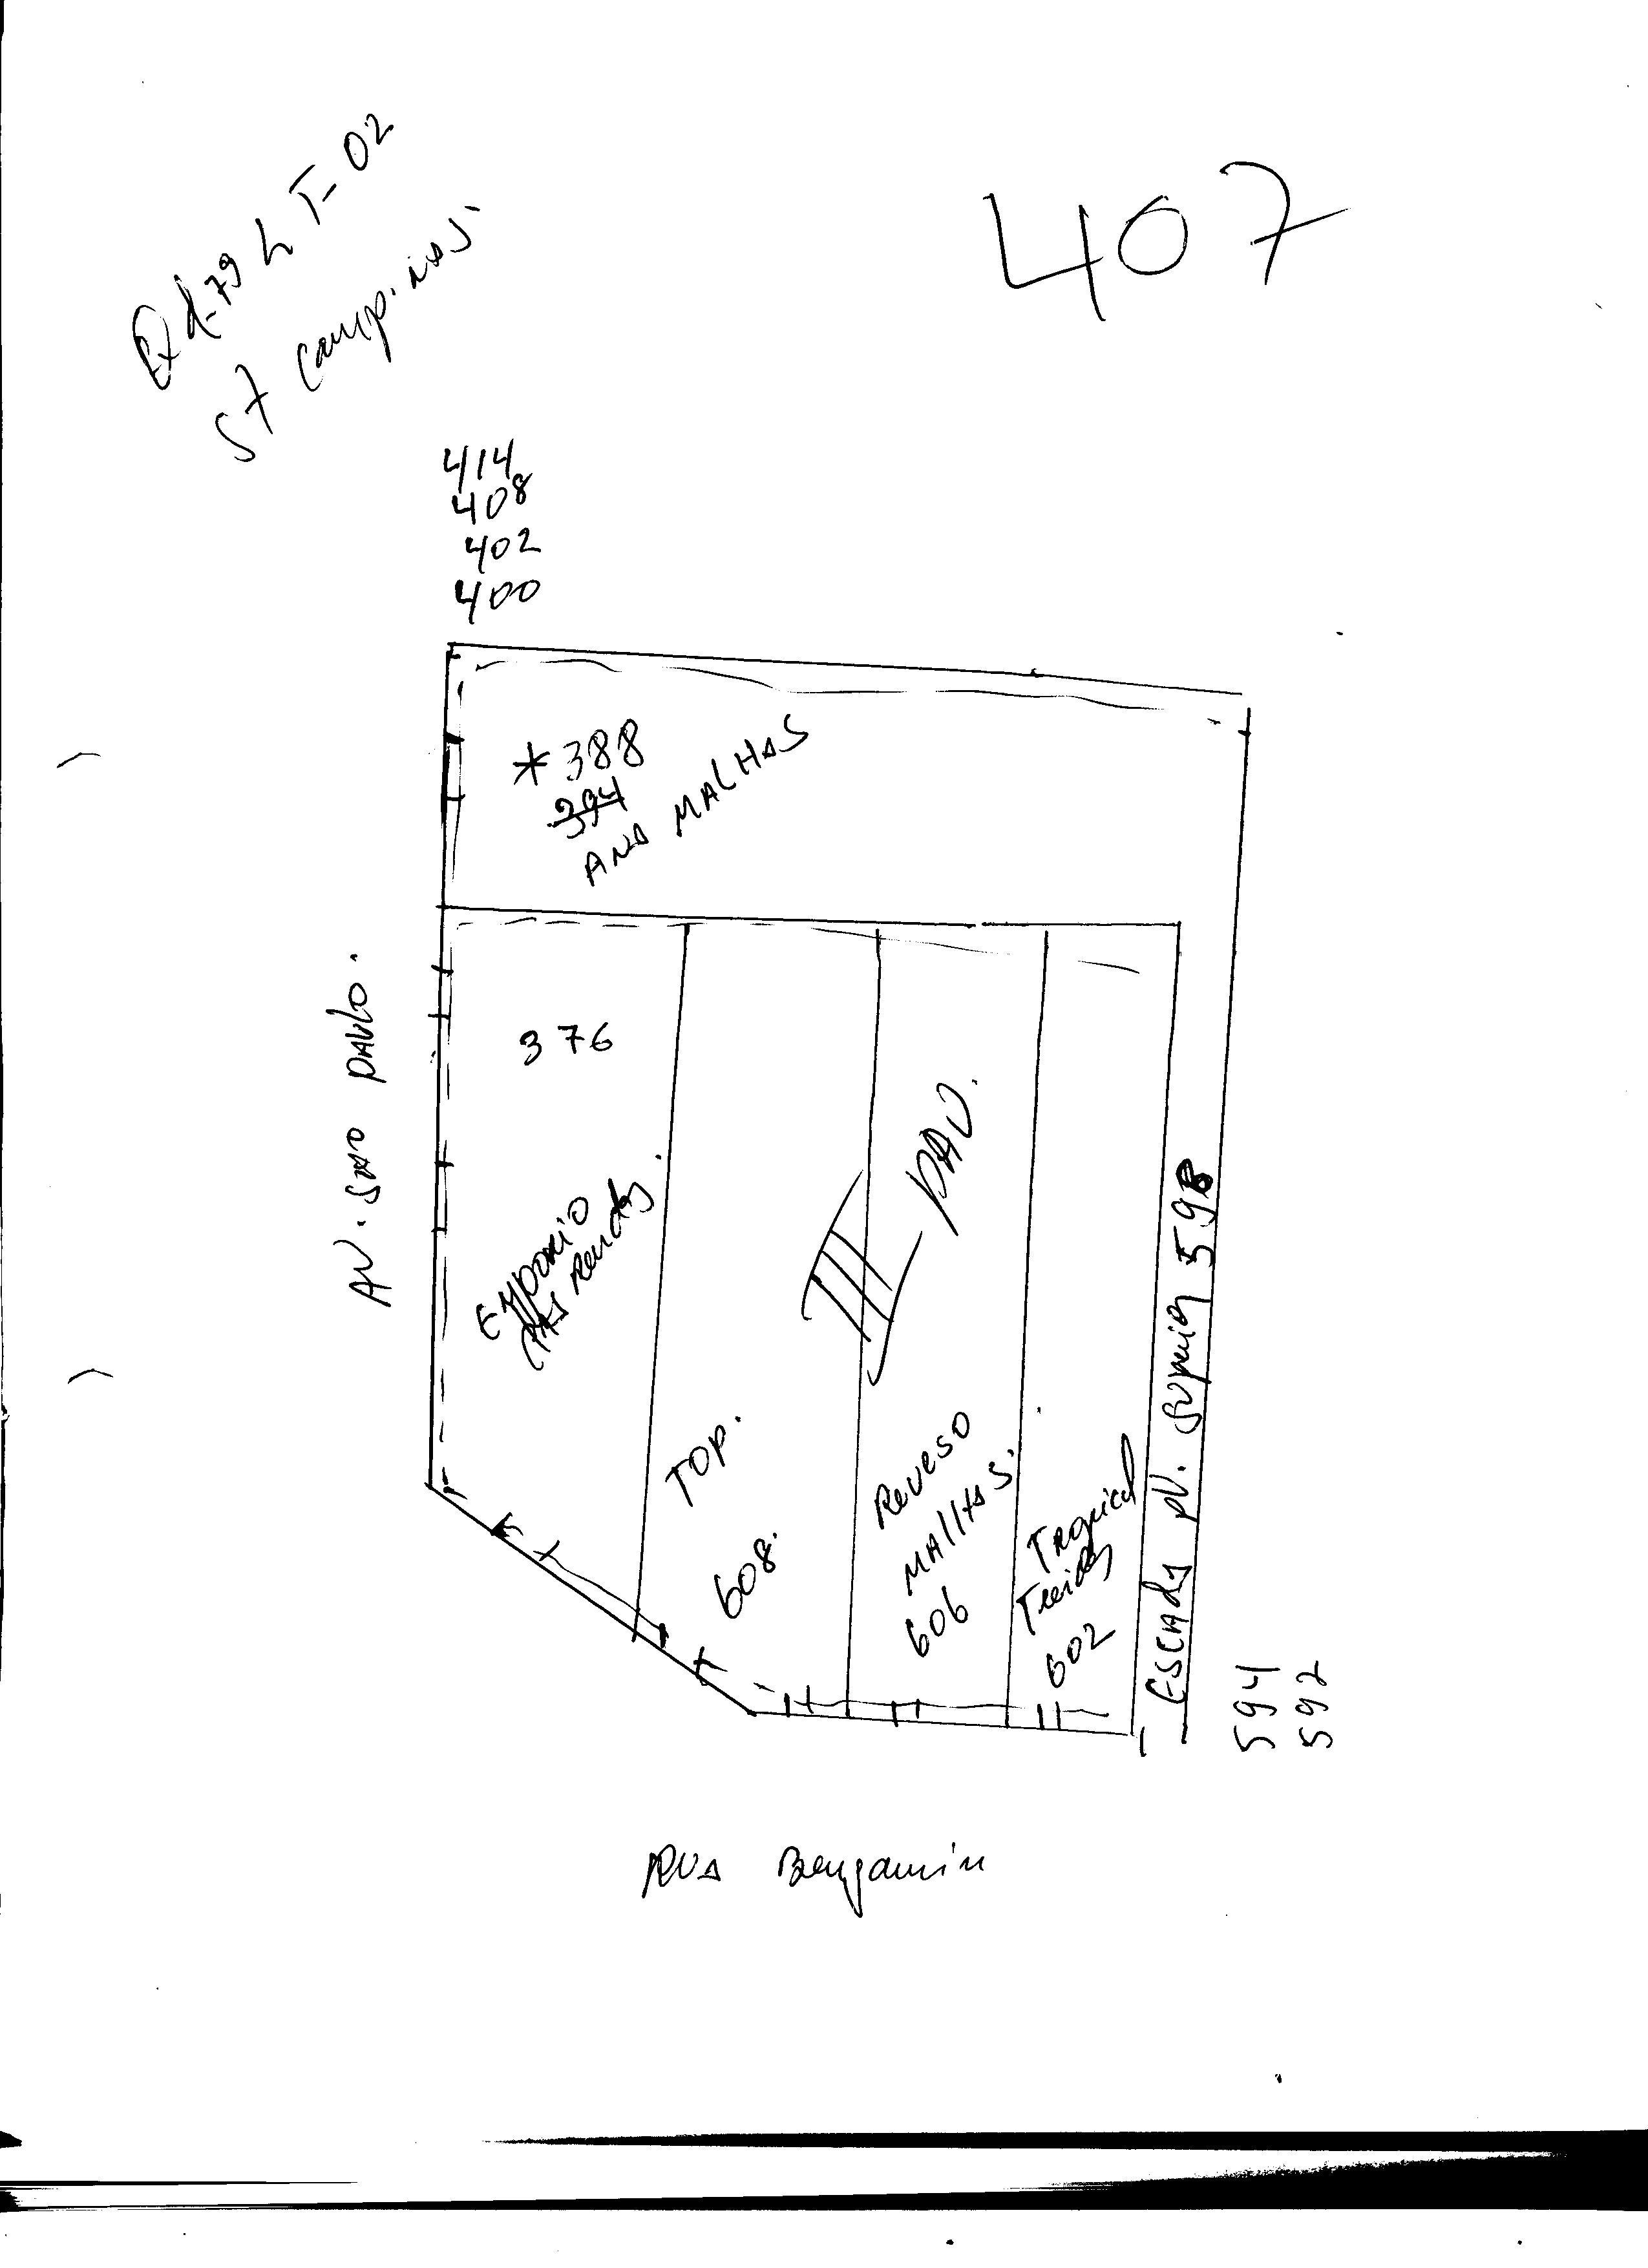 Qd-79 LT-02
ST Campinas.
407
414
408
402
400
*388
394
ANA MALHAS
AV. SÃO PAULO.
376
Emporio
das Rendas.
II PAV.
TOP.
608.
Reveso
MAlhAS.
606
Tropical
Tecidos
602
ESCADA PV. Superior 598
594
592
RUA Bengamin